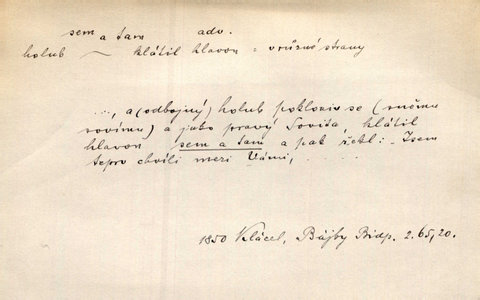 sem a tam adv.
holub ~ klátil hlavou = v různé strany
..., a (odbojný) holub pokloniv se (
) a jako pravý klátil
hlavou sem a tam a pak řekl: Jsem
teprv chvíli mezi Vámi, . . . . .
1850 Klácel, Bájky Bidp. 2.65,20.